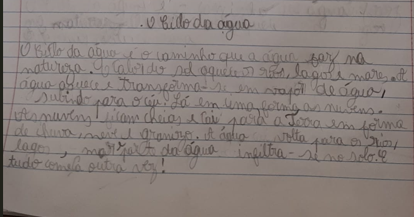 O Ciclo da água
O Ciclo da água é o caminho que a água faz na
natureza. O calor do sol aquece os rios, lagos e mares. A
água aquece e transforma-se em vapor de água,
subindo para o céu. Lá em cima forma as nuvens.
As nuvens ficam cheias e cai para a Terra em forma
de chuva, neve e granizo. A água volta para os rios,
lagos, mar parte da água infiltra-se no solo. E
tudo começa outra vez!